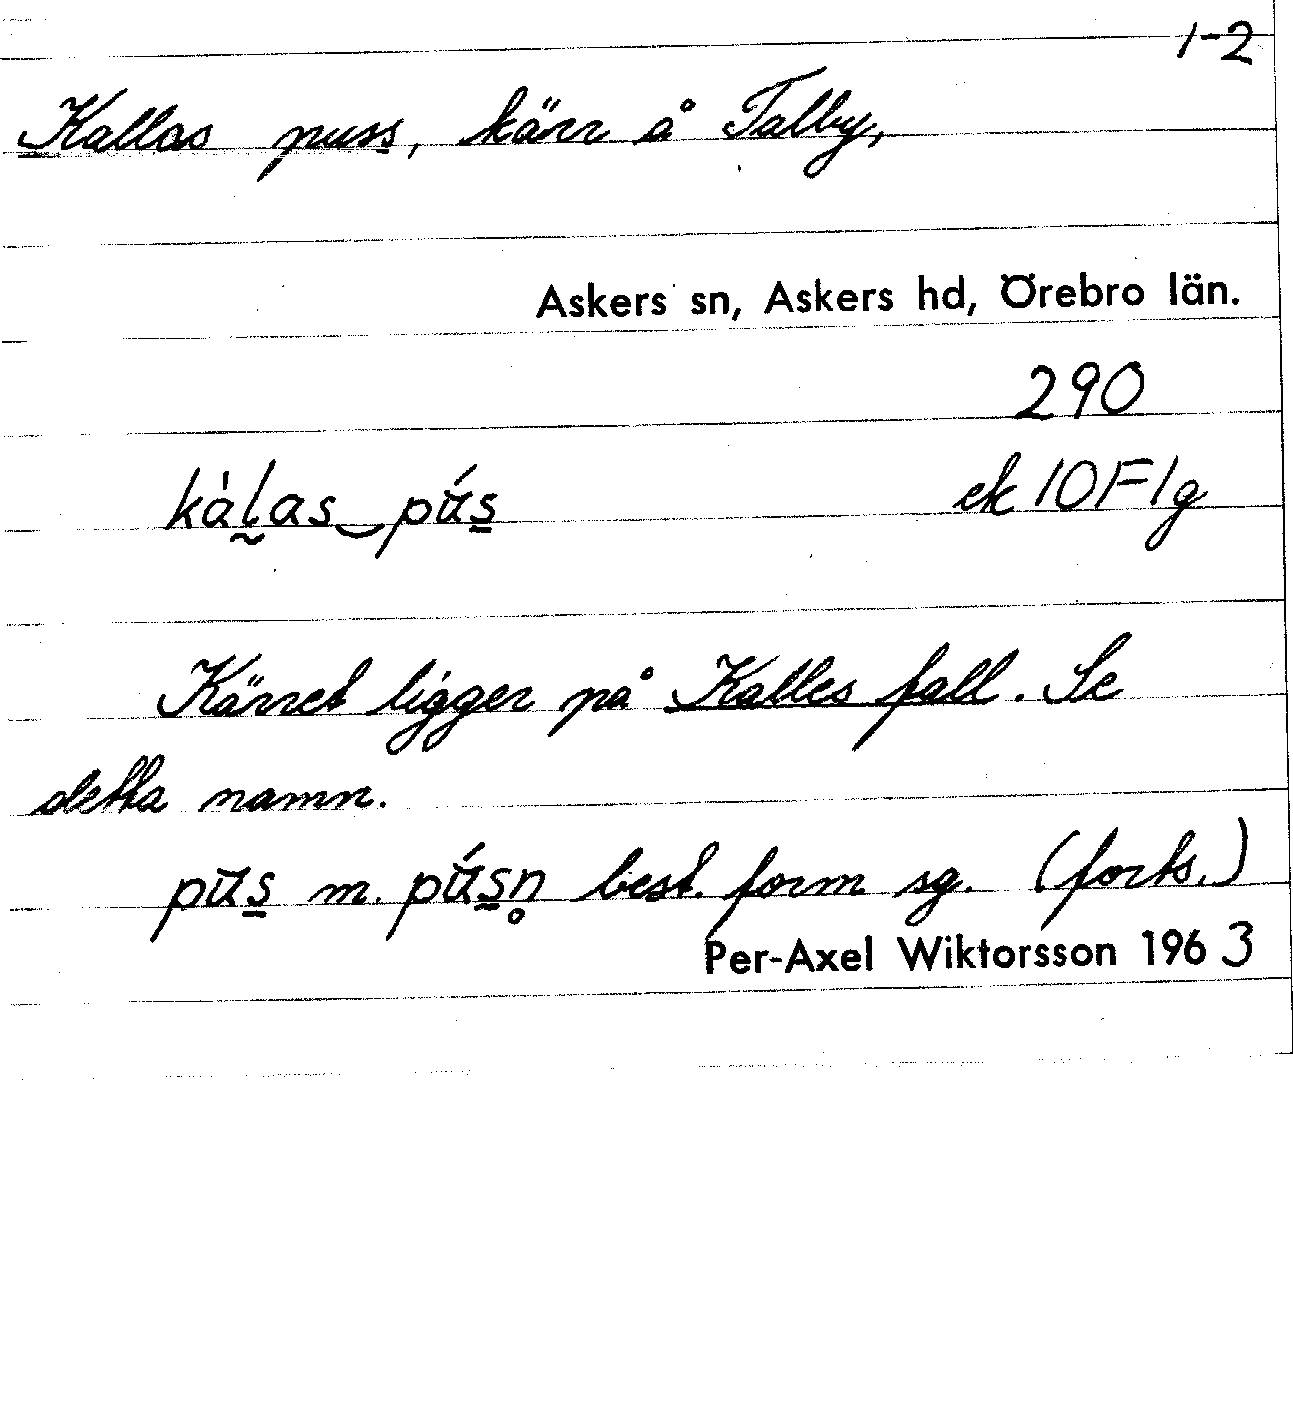 1-2
Kallas puss, kärr å Talby,
Askers sn, Askers hd, Örebro län.
290
kàl̰as‿pú̵s̲ ek 10F1g
Kärret ligger på Kalles fall. Se
detta namn.
pʉs̲ m. pʉ́s̲n̥ best. form sg. (forts.)
Per-Axel Wiktorsson 1963